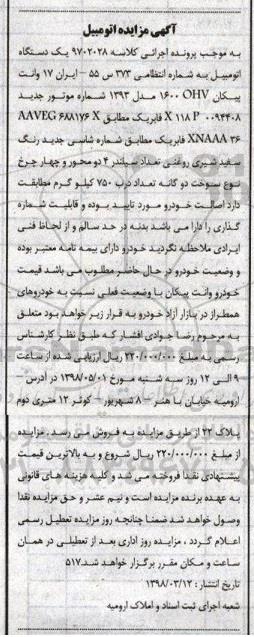 آگهی مزایده اتومبیل
به موجب پرونده اجرائی کلاسه ۹۷۰۲۰۲۸ یک دستگاه
اتومبیل به شماره انتظامی ۳۷۳ س ۵۵ - ایران ۱۷ وانت
پیکان ۱۶۰۰ OHV مدل ۱۳۹۳ شماره موتور جدید
۰۰۹۴۴۰۸ X ۱۱۸ P فابریک مطابق AAVEG ۶۸۸۱۷۶ X
XNAAA ۳۶ فابریک مطابق شماره شاسی جدید رنگ
سفید شیری روغنی تعداد سیلندر ۴ دو محور و چهار چرخ
نوع سوخت دو گانه تعداد درب ۷۵۰ کیلو گرم مطابقت
دارد اصالت خودرو مورد تایید بوده و قابلیت شماره
گذاری را دارا می باشد بدنه در حد سالم و از لحاظ فنی
ایرادی ملاحظه نگردید خودرو دارای بیمه نامه معتبر بوده
و وضعیت خودرو در حال حاضر مطلوب می باشد قیمت
خودرو وانت پیکان با وضعیت فعلی نسبت به خودروهای
همطراز در بازار آزاد خودرو به قرار زیر خواهد بود متعلق
به مرحوم رضا جوادی افشار که طبق نظر کارشناس
رسمی به مبلغ ۲۲۰/۰۰۰/۰۰۰ ریال ارزیابی شده از ساعت
۹ الی ۱۲ روز سه شنبه مورخ ۱۳۹۸/۰۵/۰۱ در آدرس
ارومیه خیابان با هنر - ۸ شهریور - کوثر ۱۲ متری دوم
پلاک ۲۲ از طریق مزایده به فروش می رسد. مزایده
از مبلغ ۲۲۰/۰۰۰/۰۰۰ ریال شروع و به بالاترین قیمت
پیشنهادی نقدا فروخته می شد و کلیه هزینه های قانونی
به عهده برنده مزایده است و نیم عشر و حق مزایده نقدا
وصول خواهد شد ضمنا چنانچه روز مزایده تعطیل رسمی
اعلام گردد ، مزایده روز اداری بعد از تعطیلی در همان
ساعت و مکان مقرر برگزار خواهد شد۵۱۷
تاریخ انتشار : ۱۳۹۸/۰۳/۱۲
شعبه اجرای ثبت اسناد و املاک ارومیه